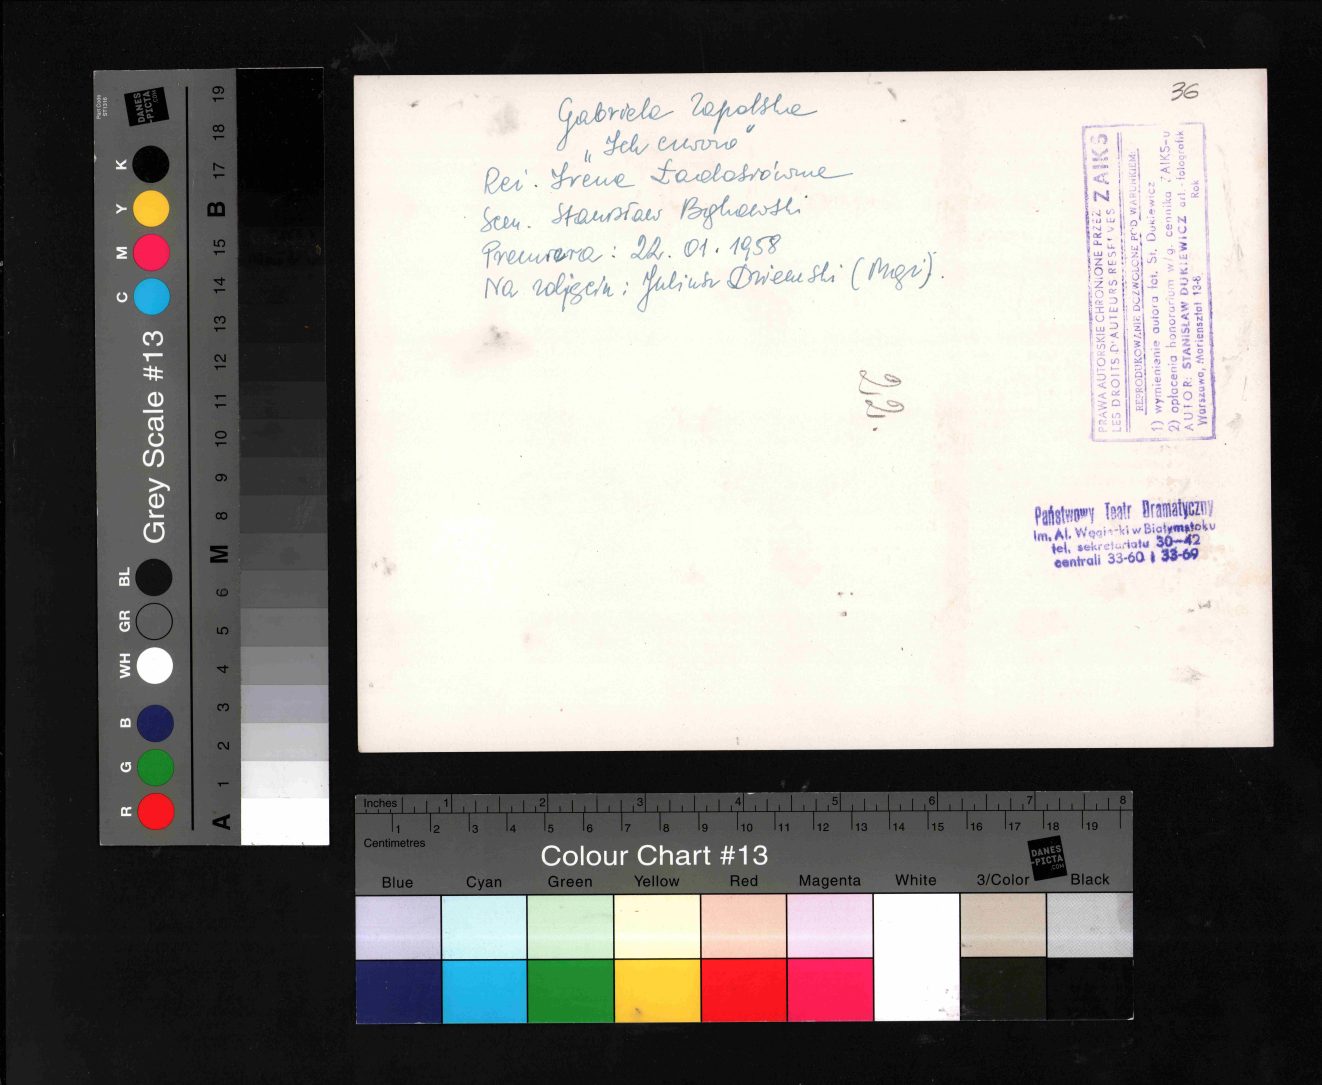 36
Gabriela Zapolska
„Ich czworo"
Reż. Irena Ładosiówna
Scen. Stanisław Bąkowski
Premiera: 22. 01. 1958
Na zdjęciu: Juliusz Dziemski (Mąż).
PRAWA AUTORSKIE CHRONIONE PRZEZ ZAIKS
LES DROITS D'AUTEURS RESERVES
REPRODUKOWANIE DOZWOLONE POD WARUNKIEM:
1) wymienienie autora fot. St. Dukiewicz
2) opłacenia honorarium w/g. cennika ZAIKS-u
AUTOR: STANISŁAW DUKIEWICZ art.-fotografik
Warszawa, Mariensztat 13-8 Rok
Państwowy Teatr Dramatyczny
Im. Al. Węgierki w Białymstoku
tel. sekretariatu 30-42
centrali 33-60 i 33-69
Part Code
ST1316
DANES
-PICTA
.COM
Grey Scale #13
R G B WH GR BL C M Y K
A 1 2 3 4 5 6 M 8 9 10 11 12 13 14 15 B 17 18 19
Inches 1 2 3 4 5 6 7 8
Centimetres 1 2 3 4 5 6 7 8 9 10 11 12 13 14 15 16 17 18 19
Colour Chart #13
DANES
-PICTA
.COM
Blue Cyan Green Yellow Red Magenta White 3/Color Black